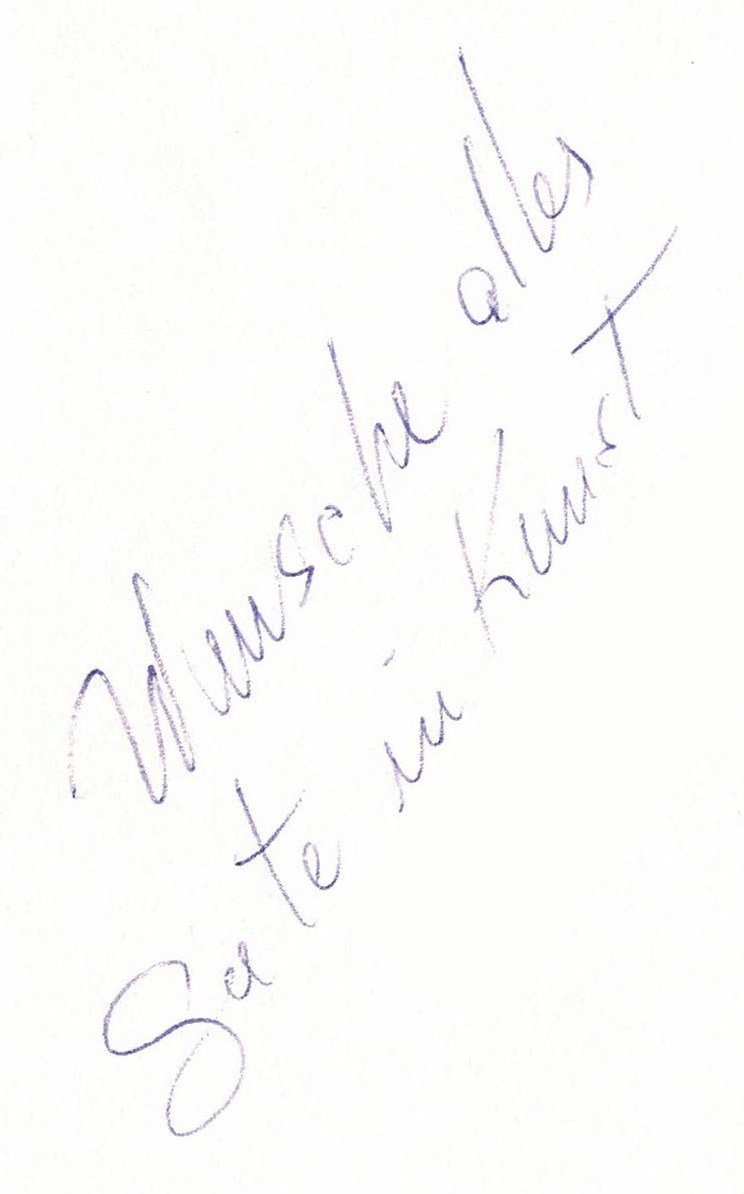 Wunsche alles
Gute in Kunst